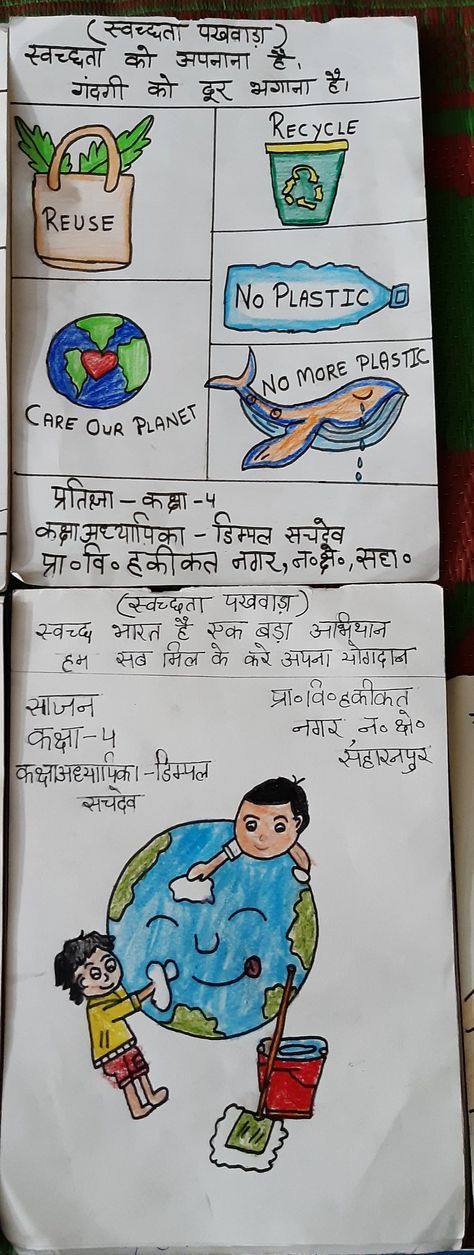 (स्वच्छता पखवाड़ा)
स्वच्छता को अपनाना है,
गंदगी को दूर भगाना है।
RECYCLE
REUSE
NO PLASTIC
CARE OUR PLANET
NO MORE PLASTIC
प्रतिज्ञा - कक्षा - 4
कक्षा अध्यापिका - डिम्पल सचदेव
प्रा॰ वि॰ हकीकत नगर, न॰ क्षे॰, सहा॰
(स्वच्छता पखवाड़ा)
स्वच्छ भारत है एक बड़ा अभियान
हम सब मिल के करे अपना योगदान
साजन
कक्षा - 4
कक्षा अध्यापिका - डिम्पल
सचदेव
प्रा॰ वि॰ हकीकत
नगर न॰ क्षे॰
सहारनपुर